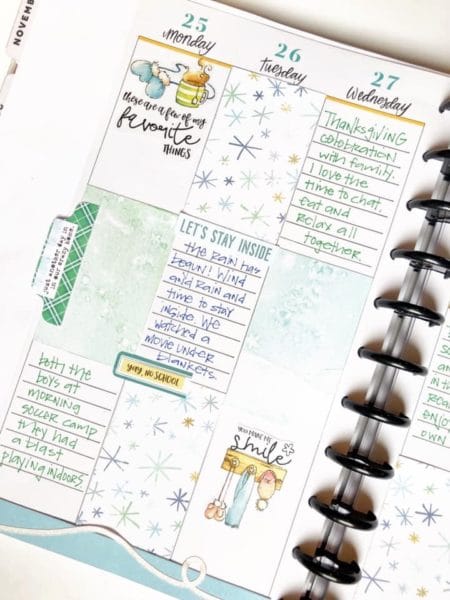 NOVEMBER
25
monday
these are a few of my
favorite
THINGS
Just another day in
our crazy house
both the
boys at
morning
soccer camp
they had
a blast
playing indoors
26
tuesday
LET'S STAY INSIDE
the rain has
begun! Wind
and rain and
time to stay
inside. We
watched a
movie under
blankets.
yay, no SCHOOL
27
wednesday
Thanksgiving
celebration
with family.
I love the
time to chat,
eat and
relax all
together.
YOU MAKE ME
smile
in th
rea
enjo
own